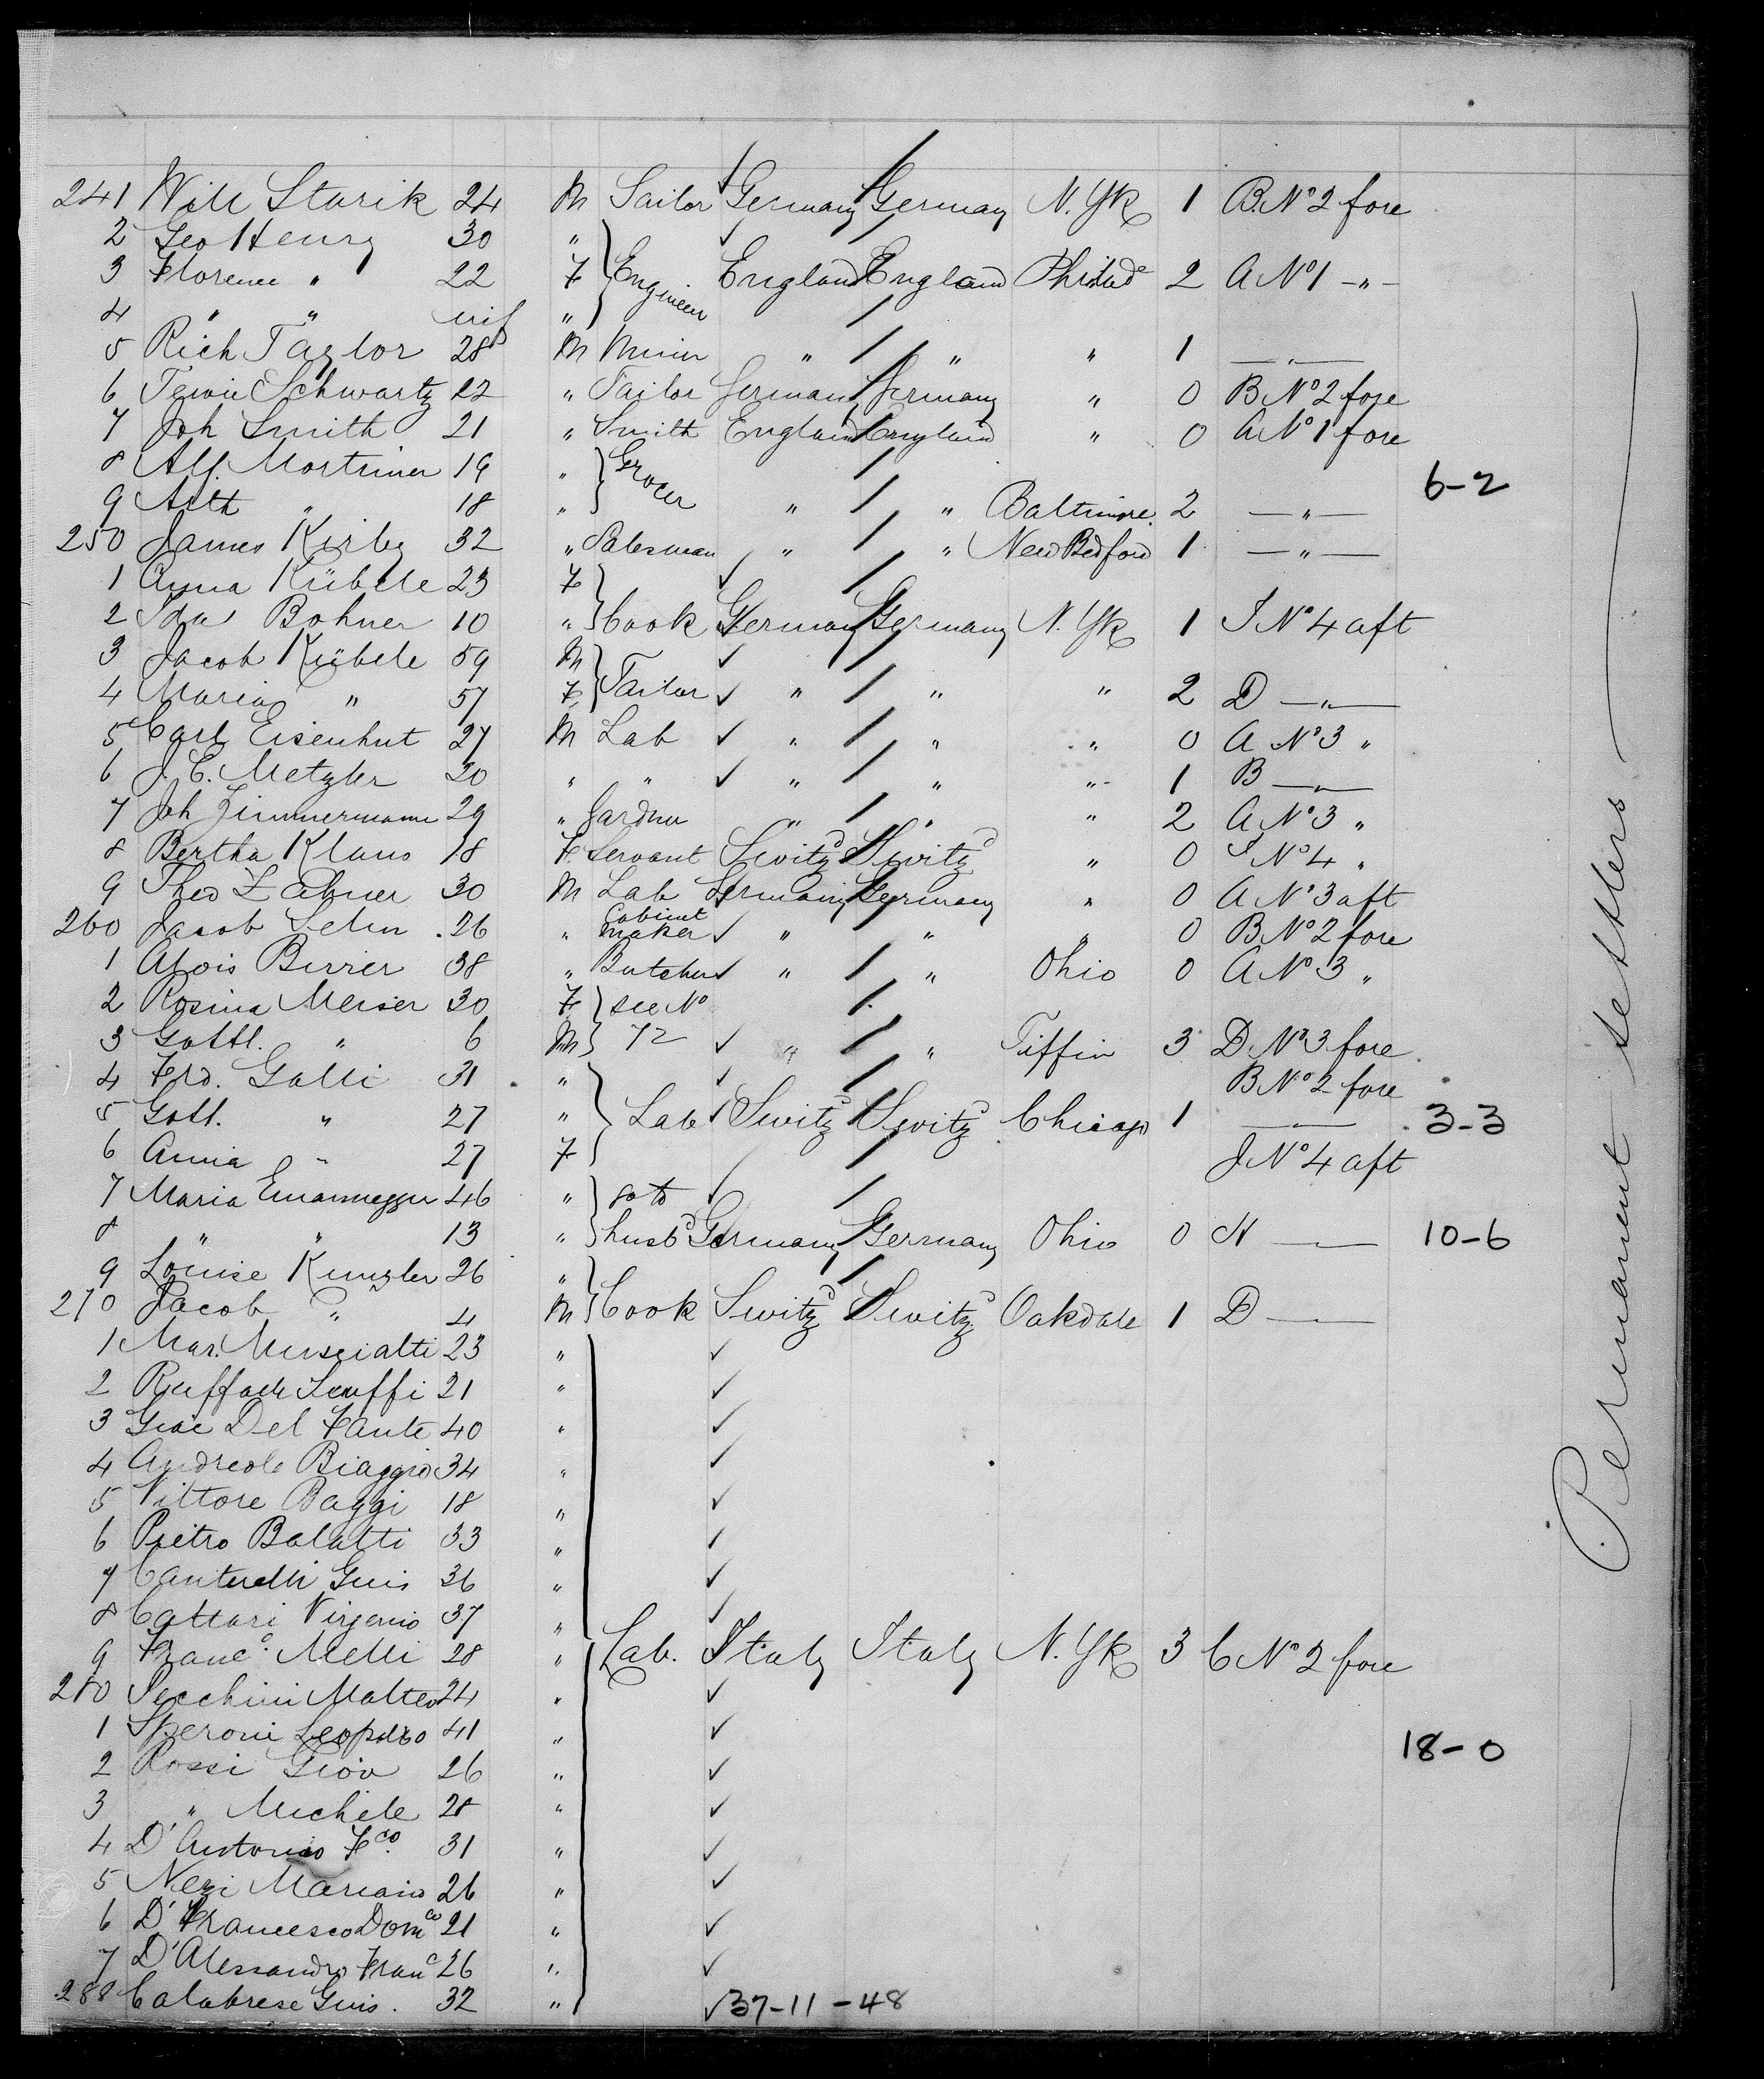 241 Will Starik 24 M Sailor Germany Germany N. Yk 1 B. No 2 fore
2 Geo Henry 30 "
3 Florence " 22 F Engineer England England Philad 2 A No 1 - " -
4 " " inf "
5 Rich Taylor 28 M Miner " " " 1 — " —
6 Schwartz 22 " Tailor Germany Germany " 0 B No 2 fore
7 Joh Smith 21 " Smith England England " 0 A No 1 fore
8 Alf. Mortimer 19 " Grocer
6-2
9 Arth " 18 " " " Baltimore 2 — " —
250 James Kirby 32 " Salesman " " New Bedford 1 — " —
1 Anna Kübele 23 F
2 Ida Bohner 10 " Cook Germany Germany N. Yk 1 J No 4 aft
3 Jacob Kübele 59 M
4 Maria " 57 F Tailor " " " 2 D — " —
5 Carl Eisenhut 27 M Lab " " " 0 A No 3 "
6 J. C. Metzler 20 " " " " " 1 B — " —
7 Joh Zimmermann 29 " Gardner " " " 2 A No 3 "
8 Bertha Klaus 18 F Servant Switzd Switzd " 0 J No 4 "
9 Theo Zahner 30 M Lab Germany Germany " 0 A No 3 aft
260 Jacob Selm 26 " Cabinet maker " " " 0 B No 2 fore
1 Alois Birrer 38 " Butcher " " Ohio 0 A No 3 "
2 Rosina Meiser 30 F see No
3 Gottl. " 6 M 72 " " Tiffin 3 D No 3 fore
4 Frd. Galli 31 " B No 2 fore
5 Gotl. " 27 " Lab Switzd Switzd Chicago 1 — " — 3-3
6 Anna " 27 F J No 4 aft
7 Maria 46 " go to
8 " " 13 " husbd Germany Germany Ohio 0 N — " — 10-6
9 Louise Kunzler 26 "
270 Jacob " 4 M Cook Switzd Switzd Oakdale 1 D — " —
1 Mar. Muscialti 23 "
2 Raffaele 21 "
3 Giac Del Fante 40 "
4 Andreole Biaggio 34 "
5 Vittore Baggi 18 "
6 Pietro Balatti 33 "
7 Canturelli Guis 36 "
8 Cattari Virgenio 37 "
9 Franco. Melli 28 " Lab. Italy Italy N. Yk 3 C No 2 fore
280 Secchini Matteo 24 "
1 Speroni Leopoldo 41 "
18-0
2 Rossi Giov 26 "
3 " Michele 28 "
4 D'Antonio Fco. 31 "
5 Neri Mariano 26 "
6 D'Francesco Domco 21 "
7 D'Alessandro Franc 26 "
288 Calabrese Guis. 32 " 37-11-48
Permanent settlers